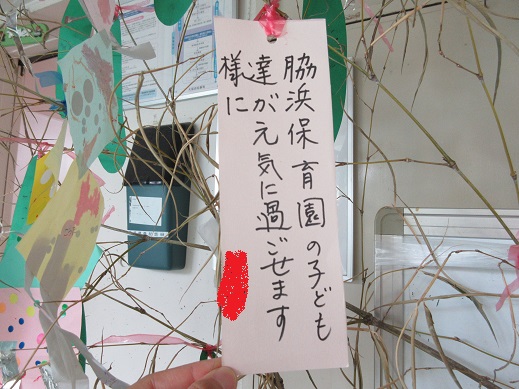 脇浜保育園の子ども
達が元気に過ごせます
様に